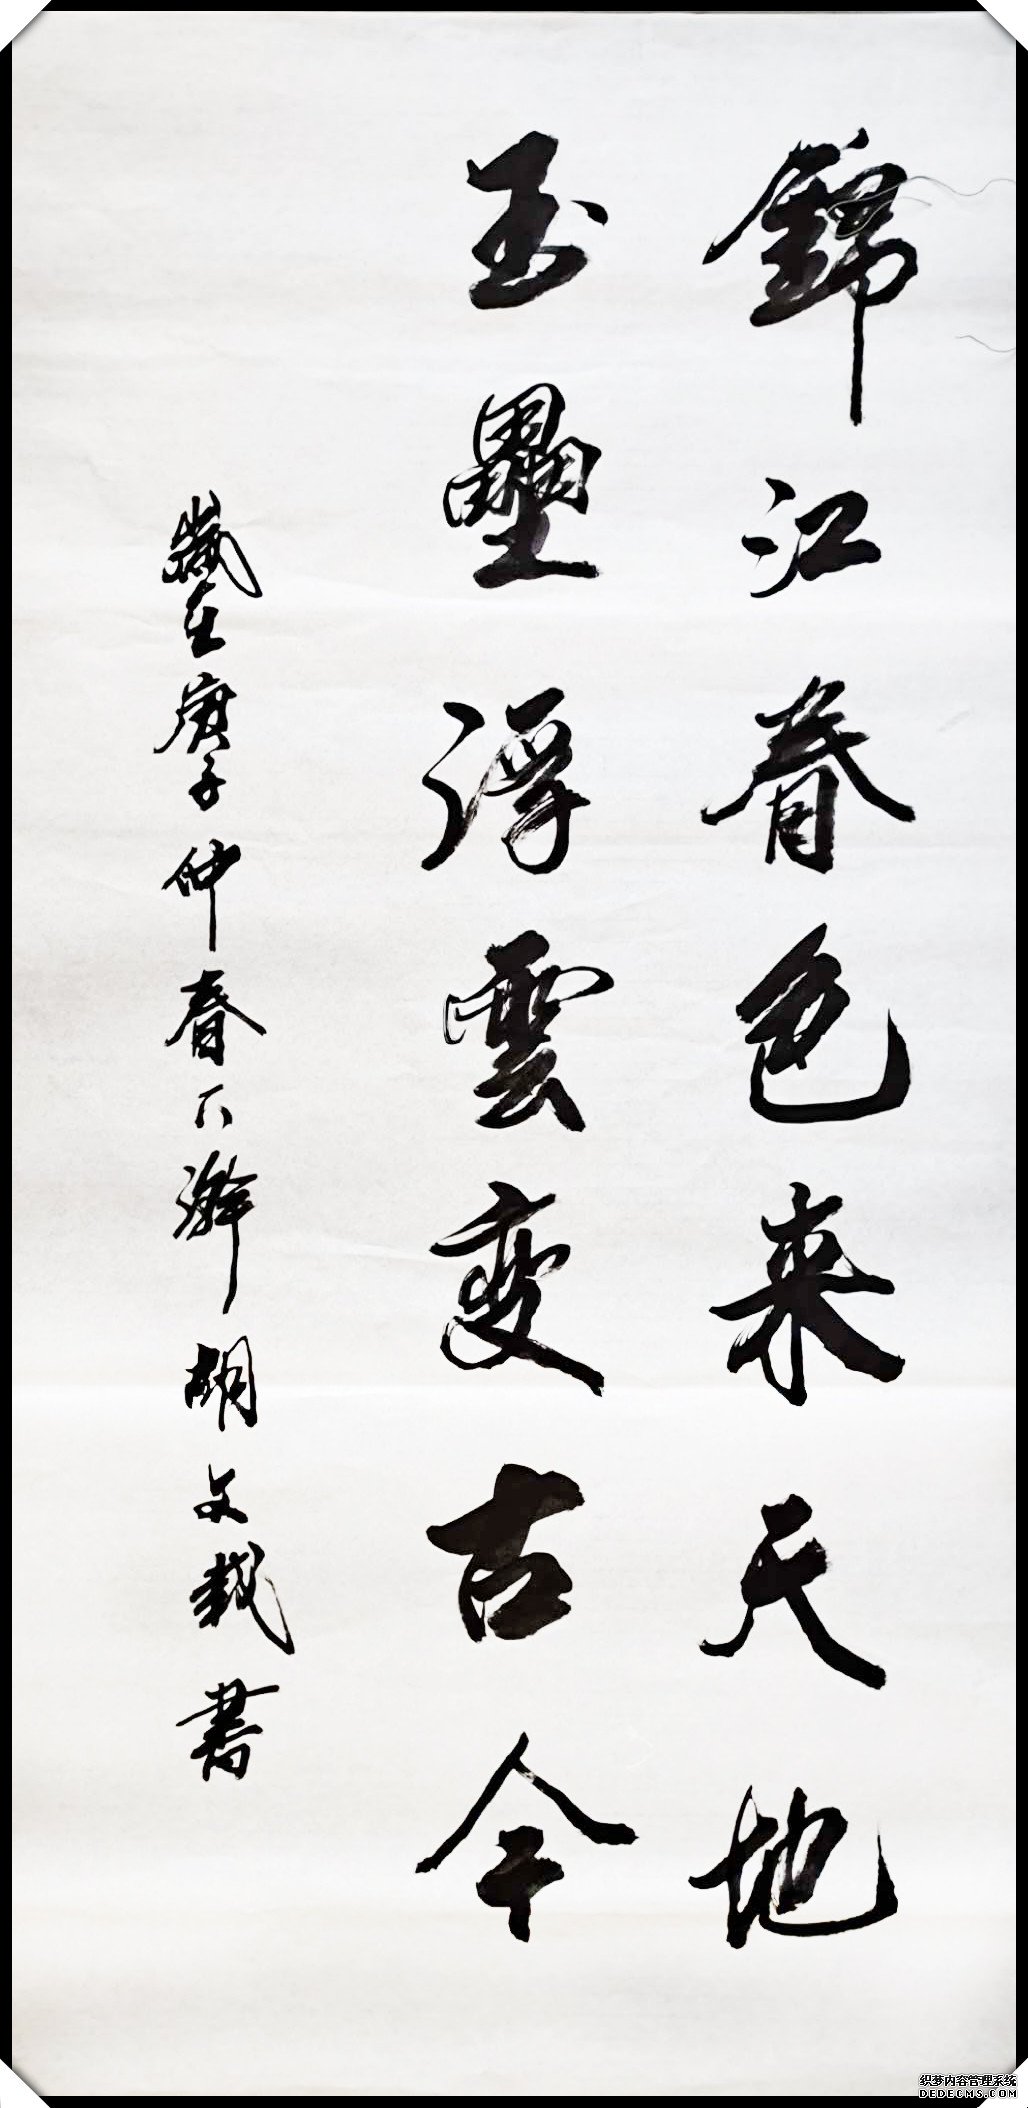 錦江春色来天地
玉壘浮雲变古今
歲在庚子仲春下澣胡文栽書
织梦内容管理系统
DEDECMS.COM